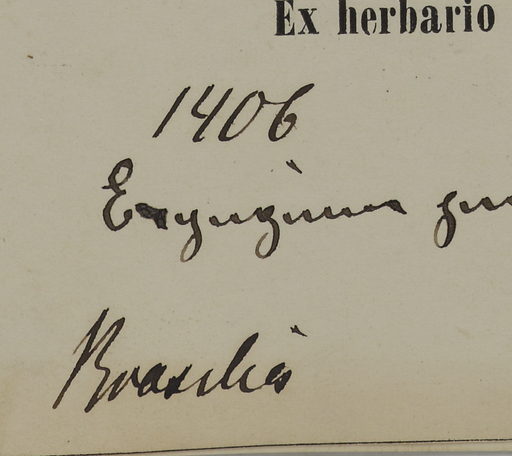 Ex herbario
1406
Eryngium
Brasilia